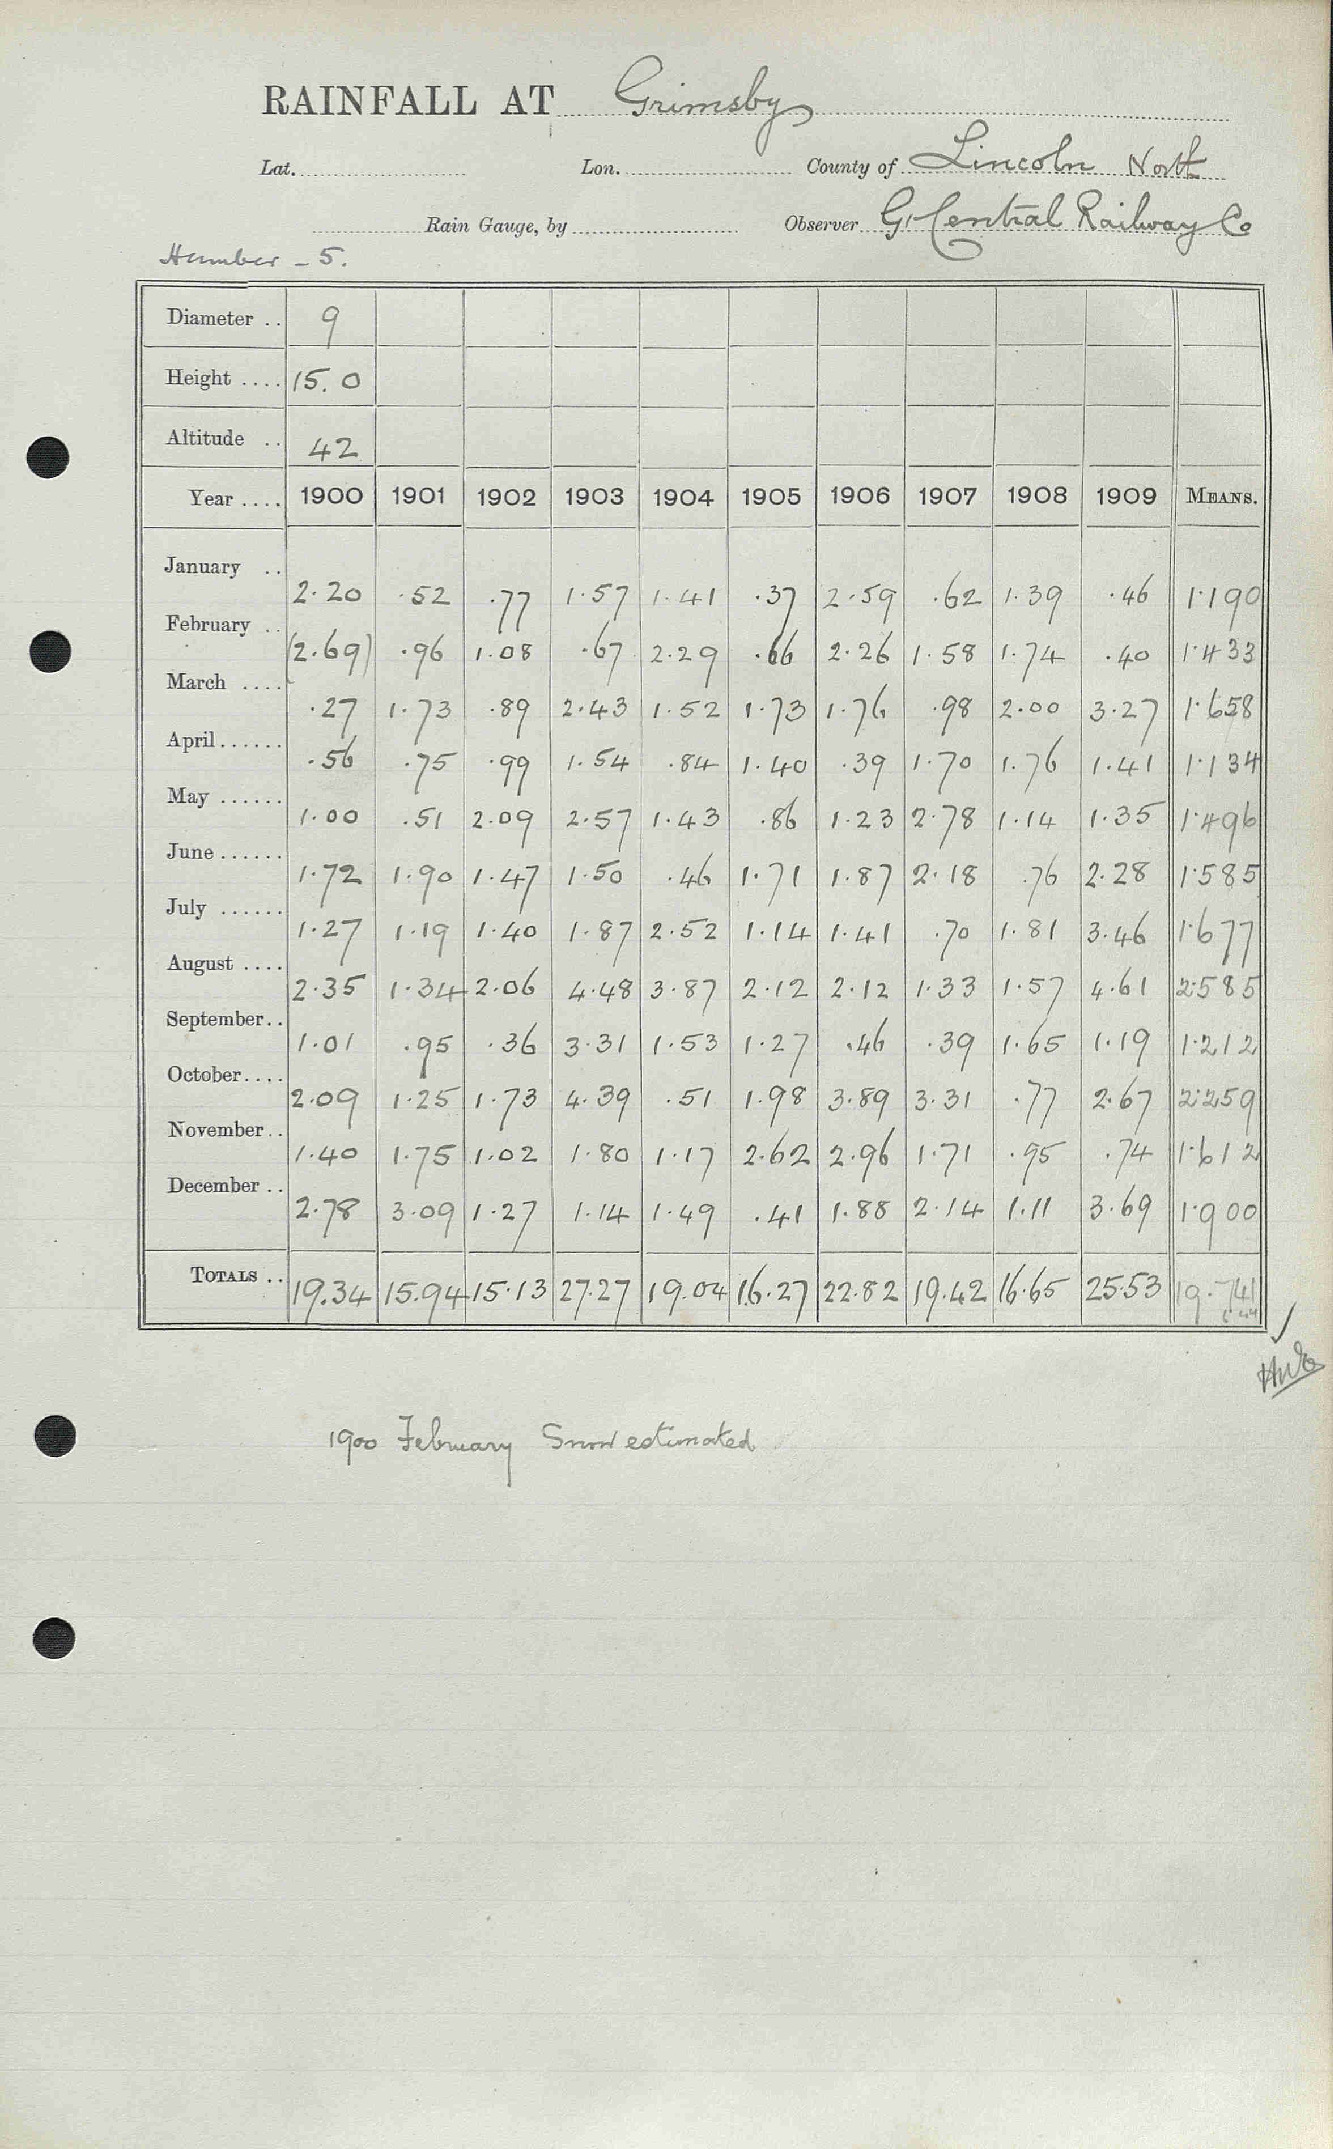 RAINFALL AT Grimsby
Lat. Lon. County of Lincoln North
Rain Gauge, by Observer Gt Central Railway Co
Humber - 5.
Diameter .. 9
Height .... 15.0
Altitude .. 42
Year .... 1900 1901 1902 1903 1904 1905 1906 1907 1908 1909 MEANS.
January .. 2.20 .52 .77 1.57 1.41 .37 2.59 .62 1.39 .46 1.190
February .. (2.69) .96 1.08 .67 2.29 .66 2.26 1.58 1.74 .40 1.433
March .... .27 1.73 .89 2.43 1.52 1.73 1.76 .98 2.00 3.27 1.658
April ...... .56 .75 .99 1.54 .84 1.40 .39 1.70 1.76 1.41 1.134
May ...... 1.00 .51 2.09 2.57 1.43 .86 1.23 2.78 1.14 1.35 1.496
June ...... 1.72 1.90 1.47 1.50 .46 1.71 1.87 2.18 .76 2.28 1.585
July ...... 1.27 1.19 1.40 1.87 2.52 1.14 1.41 .70 1.81 3.46 1.677
August .... 2.35 1.34 2.06 4.48 3.87 2.12 2.12 1.33 1.57 4.61 2.585
September.. 1.01 .95 .36 3.31 1.53 1.27 .46 .39 1.65 1.19 1.212
October.... 2.09 1.25 1.73 4.39 .51 1.98 3.89 3.31 .77 2.67 2.259
November.. 1.40 1.75 1.02 1.80 1.17 2.62 2.96 1.71 .95 .74 1.612
December .. 2.78 3.09 1.27 1.14 1.49 .41 1.88 2.14 1.11 3.69 1.900
TOTALS .. 19.34 15.94 15.13 27.27 19.04 16.27 22.82 19.42 16.65 25.53 19.741
1900 February Snow estimated